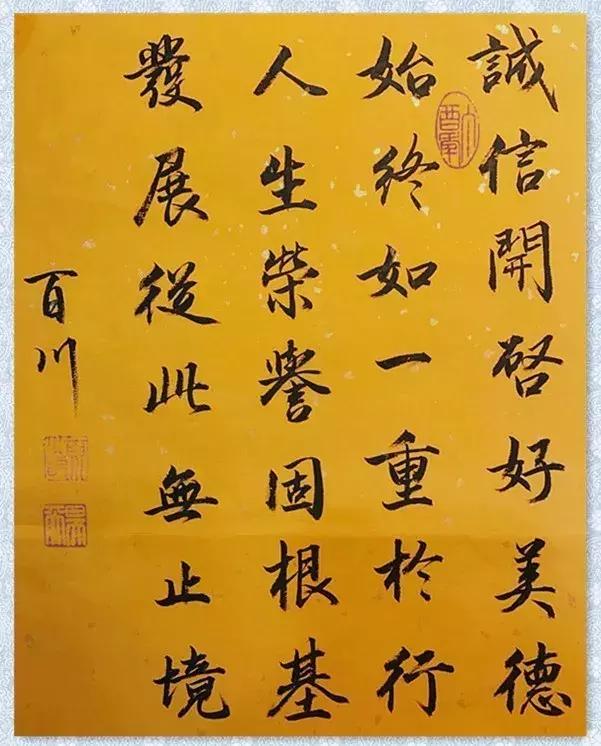 誠信開啓好美德
始終如一重於行
人生榮譽固根基
發展從此無止境
百川